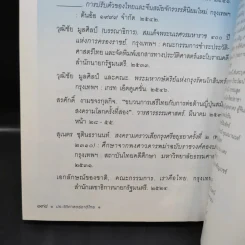 การปรับตัวของไทยและจีนสมัยจักรวรรดินิยมใหม่ กรุงเทพฯ
ต้นอ้อ ๑๙๙๙ จำกัด. ๒๕๔๒.
วุฒิชัย มูลศิลป์ (บรรณาธิการ). สมเด็จพระนเรศวรมหาราช ๔๐๐ ปี
แห่งการครองราชย์. กรุงเทพฯ : คณะกรรมการชำระประวัติ
ศาสตร์ไทย และจัดพิมพ์เอกสารทางประวัติศาสตร์และโบราณคดี
สำนักนายกรัฐมนตรี. ๒๕๓๓.
วุฒิชัย มูลศิลป์ และคณะ. พระมหากษัตริย์แห่งกรุงรัตนโกสินทร์
กรุงเทพฯ : เกษ เอ็ดดูเคชั่น. ๒๕๔๖.
สรศักดิ์ งามขจรกุลกิจ. "ขบวนการเสรีไทยกับการต่อต้านญี่ปุ่นสมัย
สงครามโลกครั้งที่สอง". วารสารธรรมศาสตร์. มีนาคม
หน้า ๒๘ - ๕๕.
สุเนตร ชุตินธรานนท์. สงครามคราวเสียกรุงศรีอยุธยาครั้งที่ ๒
๒๓๑๐) : ศึกษาจากพงศาวดารพม่าฉบับราชวงศ์คองบอง
กรุงเทพฯ : สถาบันไทยคดีศึกษา. มหาวิทยาลัยธรรมศาสตร์
๒๕๓๑.
เอกลักษณ์ของชาติ, คณะกรรมการ. เราคือไทย. กรุงเทพฯ
สำนักเลขาธิการนายกรัฐมนตรี. ๒๕๓๓.